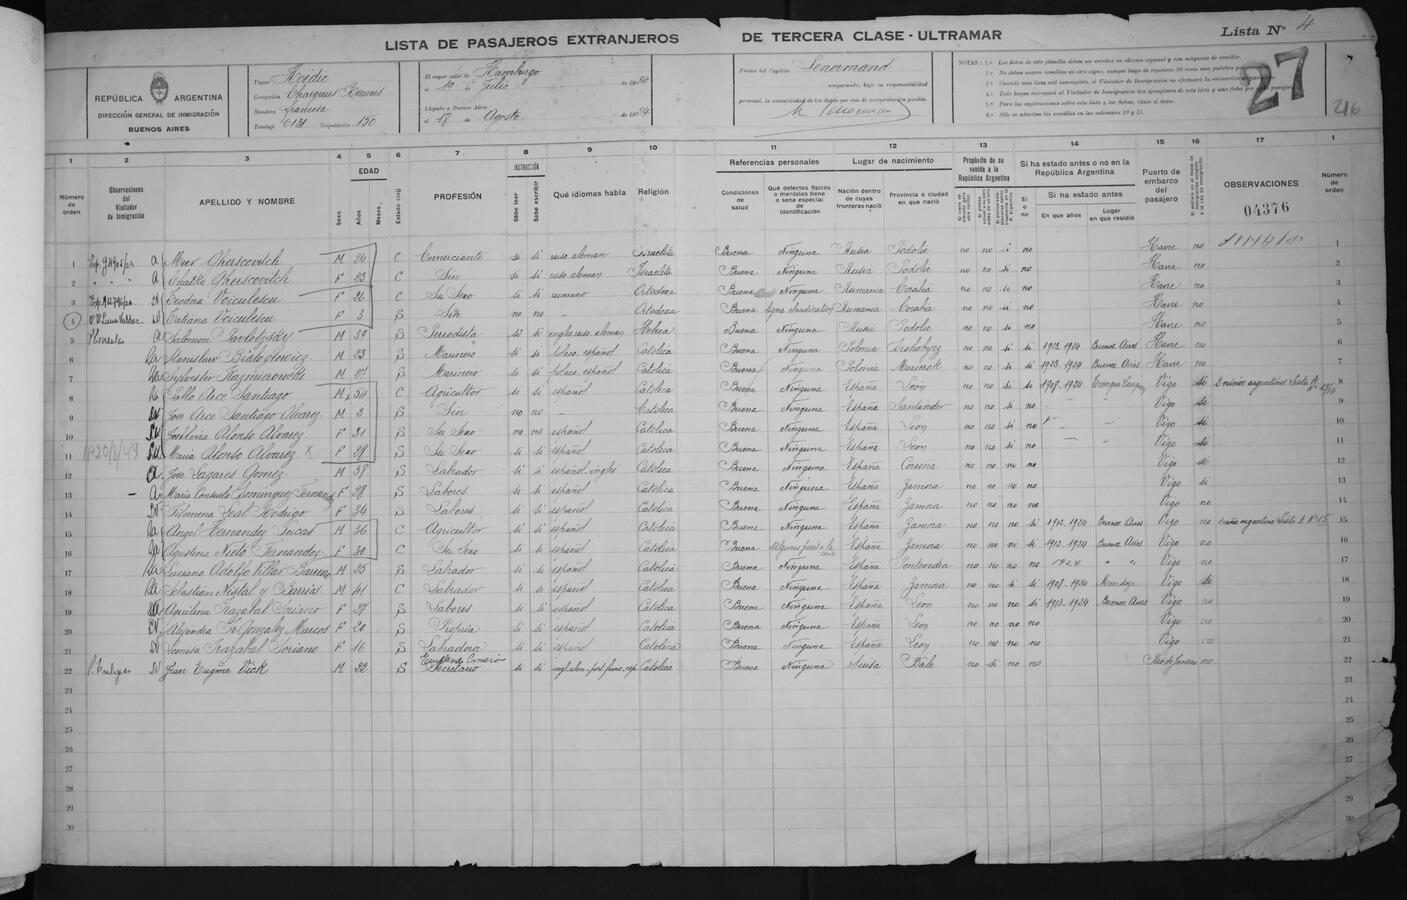 LISTA DE PASAJEROS EXTRANJEROS DE TERCERA CLASE - ULTRAMAR
Lista Nº 4
27
216
REPÚBLICA ARGENTINA
DIRECCIÓN GENERAL DE INMIGRACIÓN
BUENOS AIRES
Vapor
Compañía Chargeurs Reunis
Bandera francesa
Tonelaje 6131 Tripulación 150
El vapor salió de Hamburgo
el 19 de Julio de 1924
Llegado a Buenos Aires
el 18 de Agosto de 1924
Firma del Capitán Lenormand
asegurando, bajo su responsabilidad
personal, la autenticidad de los datos que son de comprobación posible.
NOTAS: 1.ª Los datos de esta planilla deben ser escritos en idioma español y con máquina de escribir.
1 2 3 4 5 6 7 8 9 10 11 12 13 14 15 16 17 1
Número de orden
Observaciones del Visitador de Inmigración
APELLIDO Y NOMBRE
Sexo
EDAD
Años
Meses
Estado civil
PROFESIÓN
INSTRUCCIÓN
Sabe leer
Sabe escribir
Qué idiomas habla
Religión
Referencias personales
Condiciones de salud
Qué defectos físicos o mentales tiene o sena especial de identificación
Lugar de nacimiento
Nación dentro de cuyas fronteras nació
Provincia o ciudad en que nació
Propósito de su venida a la República Argentina
Si ha estado antes o no en la República Argentina
Si o no
Si ha estado antes
En que años
Lugar en que residió
Puerto de embarco del pasajero
OBSERVACIONES
04376
Número de orden
1 a Meer Cherscovitch M 24 C Comerciante si si ruso aleman Israelita Buena Ninguna Rusia Podolie no no si no Havre no 1
2 a Chatta Cherscovitch F 23 C Sin si si ruso, aleman Israelita Buena Ninguna Rusia Podolie no no si no Havre no 2
3 Teodora Voiculescu F 26 C Su Sexo si si rumano Ortodoxa Buena Ninguna Rumania Corabia no no si no Havre no 3
4 Tatiana Voiculescu F 3 S Sin no no - Ortodoxa Buena Rumania Corabia no no si no Havre no 4
5 a Salomon Pavlotzsky M 39 S Periodista si si ingles ruso aleman Hebrea Buena Ninguna Rusia Podolie no no si no Havre no 5
6 Stanislaw M 23 S Marinero si si polaco español Catolica Buena Ninguna Polonia Drohobycz no no si si 1923-1924 Buenos Aires Havre no 6
7 Sylvester Kazmierowski M 27 S Marinero si si polaco español Catolica Buena Ninguna Polonia no no si si 1923-1924 Buenos Aires Havre no 7
8 Pablo Arce Santiago M 34 S Agricultor si si español Catolica Buena Ninguna España León no no si si 1908-1924 Vigo si 8
9 Jose Arce Santiago Alvarez M 3 S Sin no no - Catolica Buena Ninguna España Santander no no si no Vigo si 9
10 Josefina Alonso Alvarez F 31 S Su Sexo no no español Catolica Buena Ninguna España Leon no no si no Vigo si 10
11 Maria Alonso Alvarez X F 28 S Su Sexo si si español Catolica Buena Ninguna España Leon no no si no Vigo si 11
12 a Jose Lagares Gomez M 38 S Labrador si si español ingles Catolica Buena Ninguna España Coruna no no no no Vigo si 12
13 a Maria Consuelo Dominguez Fernandez F 28 S Labores si si español Catolica Buena Ninguna España Zamora no no no no Vigo si 13
14 Filomena Leal Rodrigo F 34 S Labores si si español Catolica Buena Ninguna España Zamora no no no no Vigo no 14
15 Angel Hernandez Lucas M 36 C Agricultor si si español Catolica Buena Ninguna España Zamora no no no si 1912-1924 Buenos Aires Vigo no 15
16 Agustina Nieto Fernandez F 30 C Su Sexo si si español Catolica Buena España Zamora no no no si 1912-1924 Buenos Aires Vigo no 16
17 Luciano Adolfo Villar Barreno M 25 S Labrador si si español Catolica Buena Ninguna España Pontevedra no no no no 1924 " " Vigo no 17
18 Sebastian Nistal y Barrios M 41 C Labrador si si español Catolica Buena Ninguna España Zamora no no si si 1908-1924 Mendoza Vigo si 18
19 Aquilina Irazabal Soriano F 27 S Labores si si español Catolica Buena Ninguna España Leon no no no si 1913-1924 Buenos Aires Vigo no 19
20 Alejandra Gonzalez Marcos F 20 S Propria si si español Catolica Buena Ninguna España Leon no no no no Vigo no 20
21 Irazabal Soriano F 16 S Labradora si si español Catolica Buena Ninguna España Leon no no no no Vigo no 21
22 Jean Eugène Vick M 22 S Secretario si si Catolica Buena Ninguna Suisa Bâle no si no no Rio de Janeiro no 22
23 23
24 24
25 25
26 26
27 27
28 28
29 29
30 30